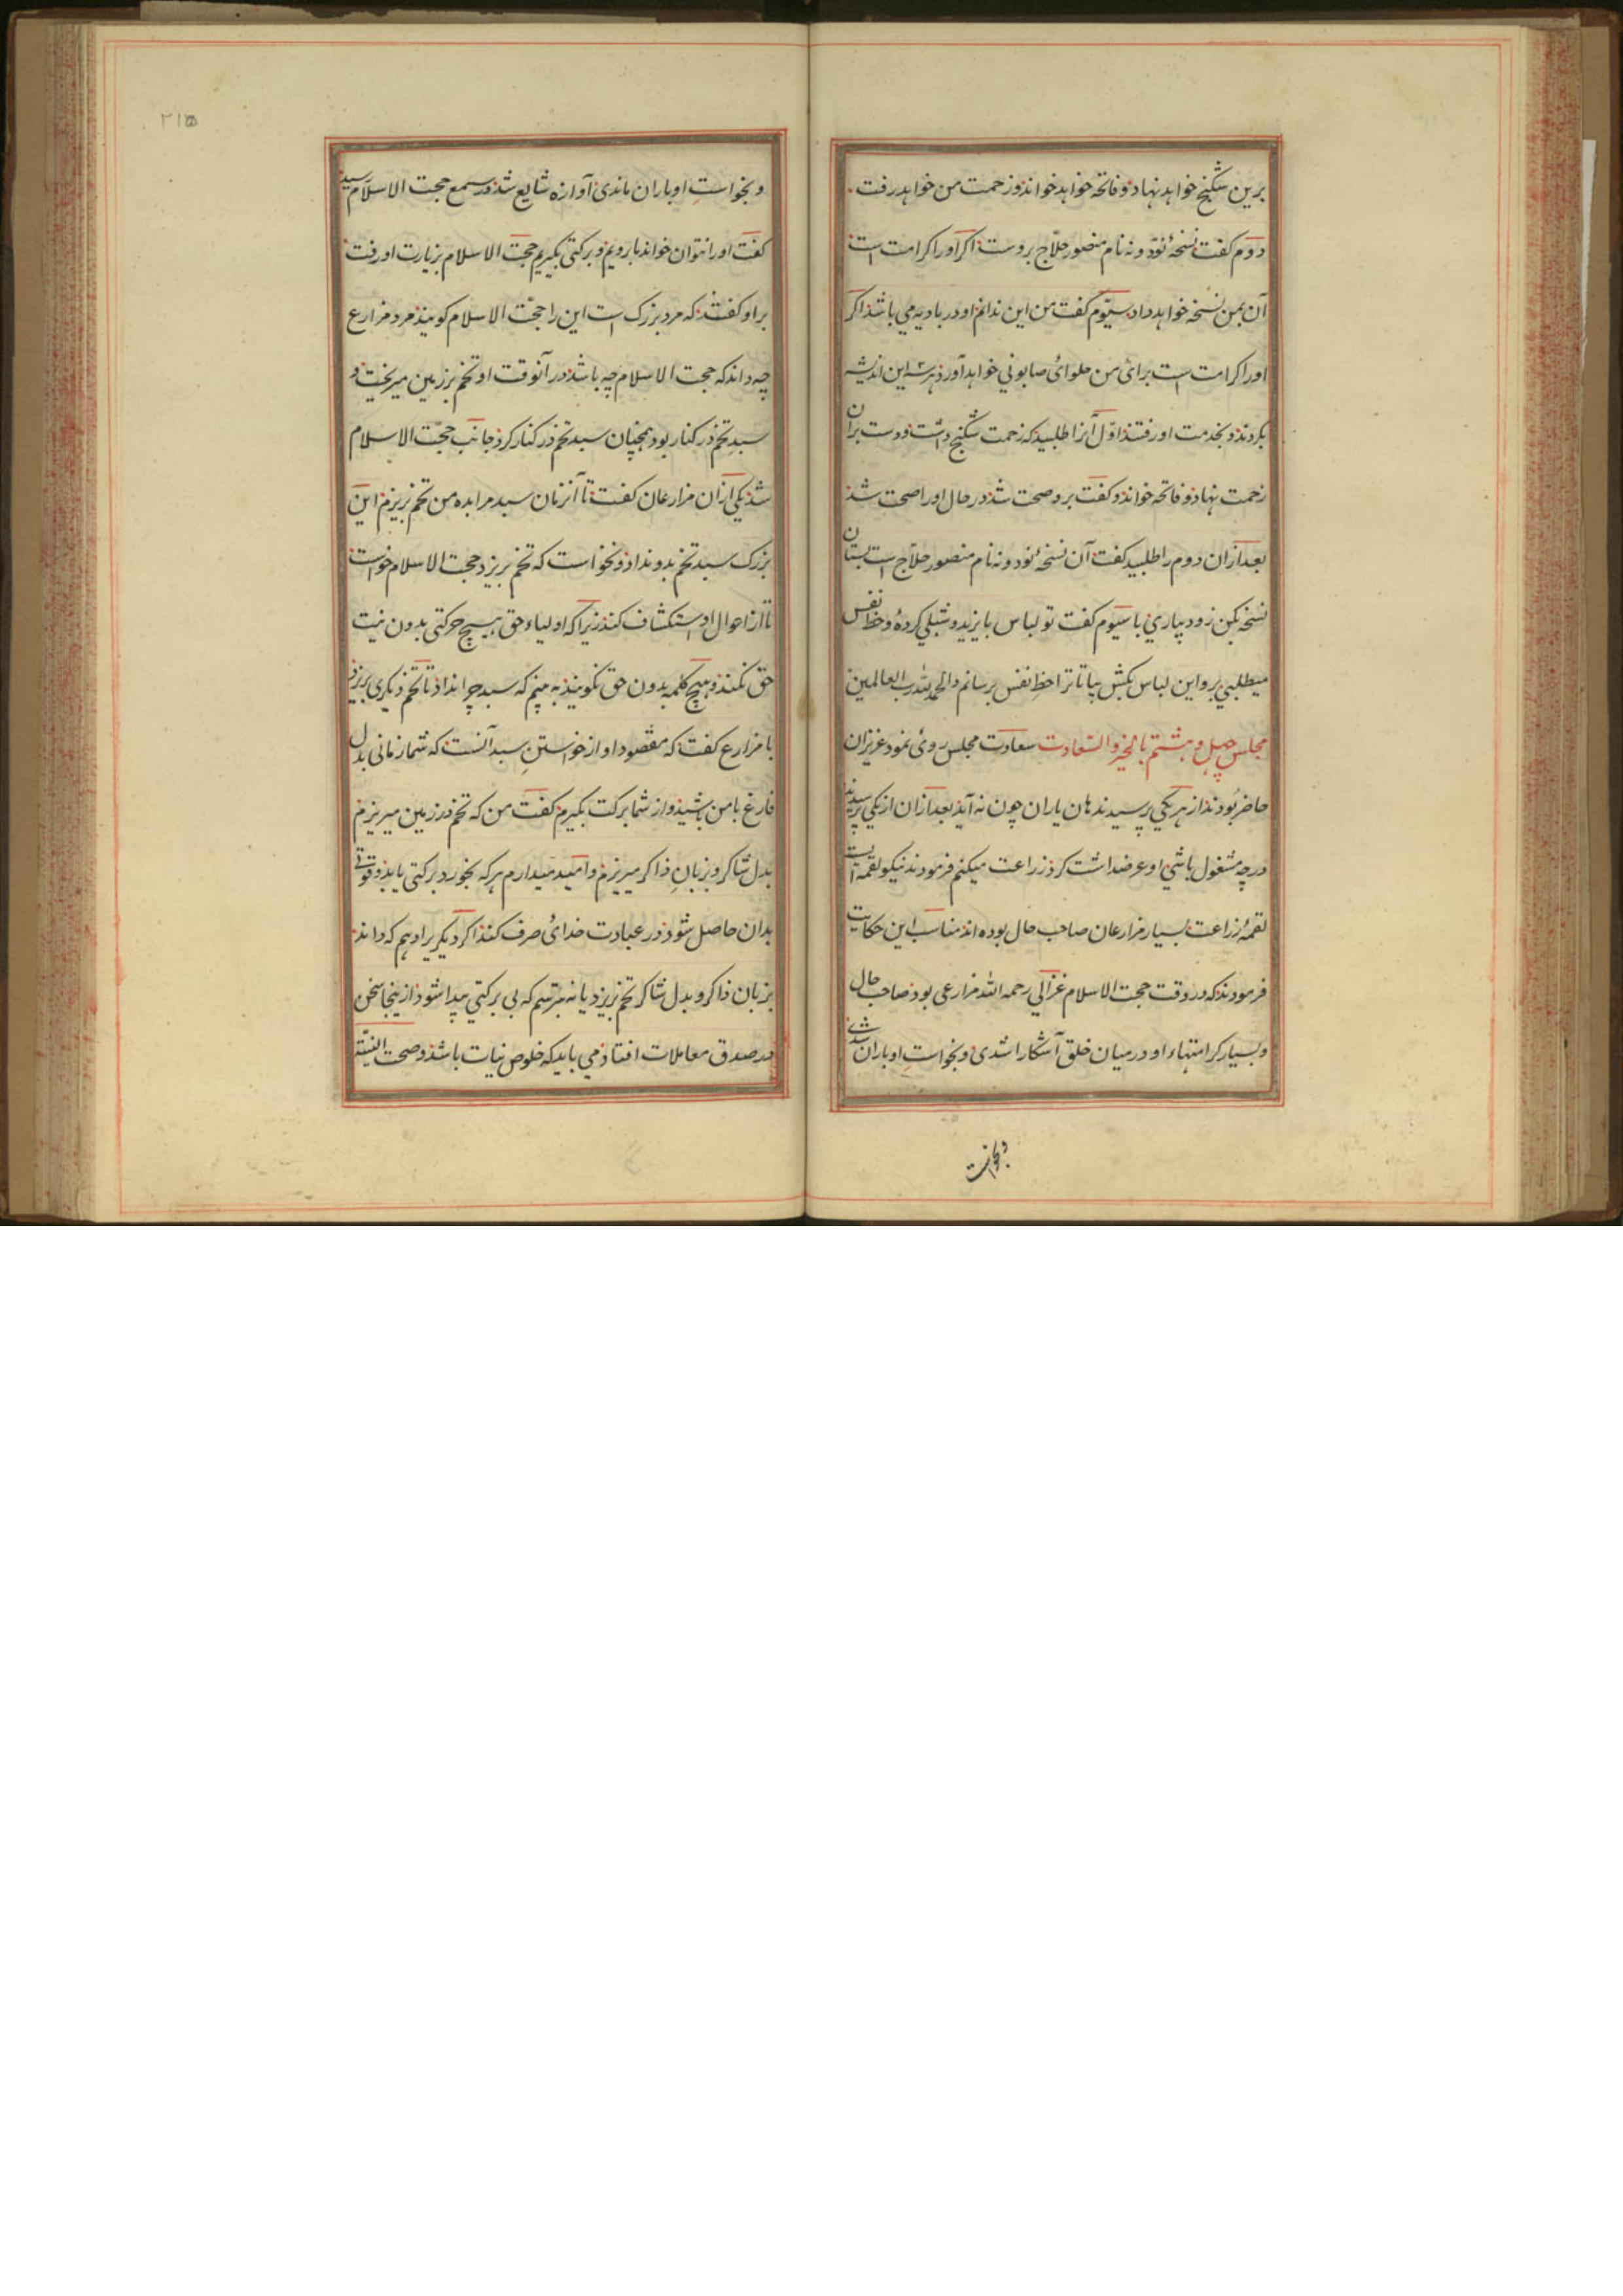 برین شکنج خواهد نهاد و فاتحه خواهد خواند و زحمت من خواهد رفت
دوم کفت نسخهٔ نود و نه نام منصور حلاج بروست اکر او را کرامت است
آن بمن نسخه خواهد داد سیوم کفت من این ندانم او در بادیه می باشد اکر
او را کرامت است برای من حلوای صابونی خواهد آورد هر سه این اندیشه
بکردند و بخدمت او رفتند اول آنرا طلبید که زحمت شکنج داشت و دست بران
زحمت نهاد و فاتحه خواند و کفت برو صحت شد در حال او را صحت شد
بعد ازان دوم را طلبید کفت آن نسخهٔ نود و نه نام منصور حلاج است بستان
نسخه بکن زود بیاری با سیوم کفت تو لباس بایزید و شبلی کردهٔ و حظ نفس
میطلبی برو این لباس بکش بیا تا ترا حظ نفس برسانم والحمد لله رب العالمین
مجلس چهل و هشتم بالخیر والسعادت سعادت مجلس روی نمود عزیزان
حاضر بودند از هر یکی پرسیدند هان یاران چون نه آید بعد ازان از یکی پرسیدند
در چه مشغول باشی او عرضداشت کرد زراعت میکنم فرمودند نیکو لقمه ایست
لقمهٔ زراعت بسیار مزارعان صاحب حال بوده اند مناسب این حکایت
فرمودند که در وقت حجت الاسلام غزالی رحمه الله مزارعی بود صاحب حال
و بسیار کرامتهاء او در میان خلق آشکارا شدی و بخواست او باران شدی
و بخواست
۲۱۵
و بخواست او باران ماندی آوازه شایع شد در سمع حجت الاسلام رسید
کفت او را نتوان خواند بارویم و برکتی بکیریم حجت الاسلام بزیارت او رفت
براو کفتند که مرد بزرک است این را حجت الاسلام کویند مرد مزارع
چه داند که حجت الاسلام چه باشد در آنوقت او تخم بر زمین میریخت و
سبد تخم در کنار بود همچنان سبد تخم در کنار کرد جانب حجت الاسلام
شد یکی ازان مزارعان کفت تا آنزمان سبد مرا بده من تخم بریزم این
بزرک سبد تخم بدو نداد و نخواست که تخم بریزد حجت الاسلام خواست
تا از احوال او استکشاف کند زیراکه اولیاء حق هیچ حرکتی بدون نیت
حق نکنند و هیچ کلمه بدون حق نکویند به بینم که سبد چرا نداد تا تخم دیکری بریزد
با مزارع کفت که مقصود او از خواستن سبد آنست که شما زمانی بدل
فارغ با من باشید و از شما برکت بکیرم کفت من که تخم در زمین میریزم
بدل شاکر و بزبان ذاکر میریزم و امید میدارم هر که بخورد برکتی یابد و قوتی
بدان حاصل شود در عبادت خدای صرف کند اکر دیکریرا دهم که داند
بزبان ذاکر و بدل شاکر تخم بریزد یا نه بترسم که بی برکتی پیدا شود ازینجا سخن
در صدق معاملات افتاد می باید که خلوص نیات باشد و صحت النیة